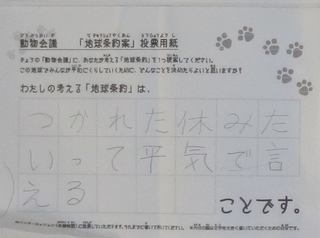 動物会議 「地球条約案」投票用紙
きょうの「動物会議」に、あなたが考える「地球条約」を1つ提案してください。
この地球でみんなが平和にくらしていくために、どんなことを決めたらよいと思いますか?
わたしの考える「地球条約」は、
つかれた休みた
いって平気で言
える
ことです。